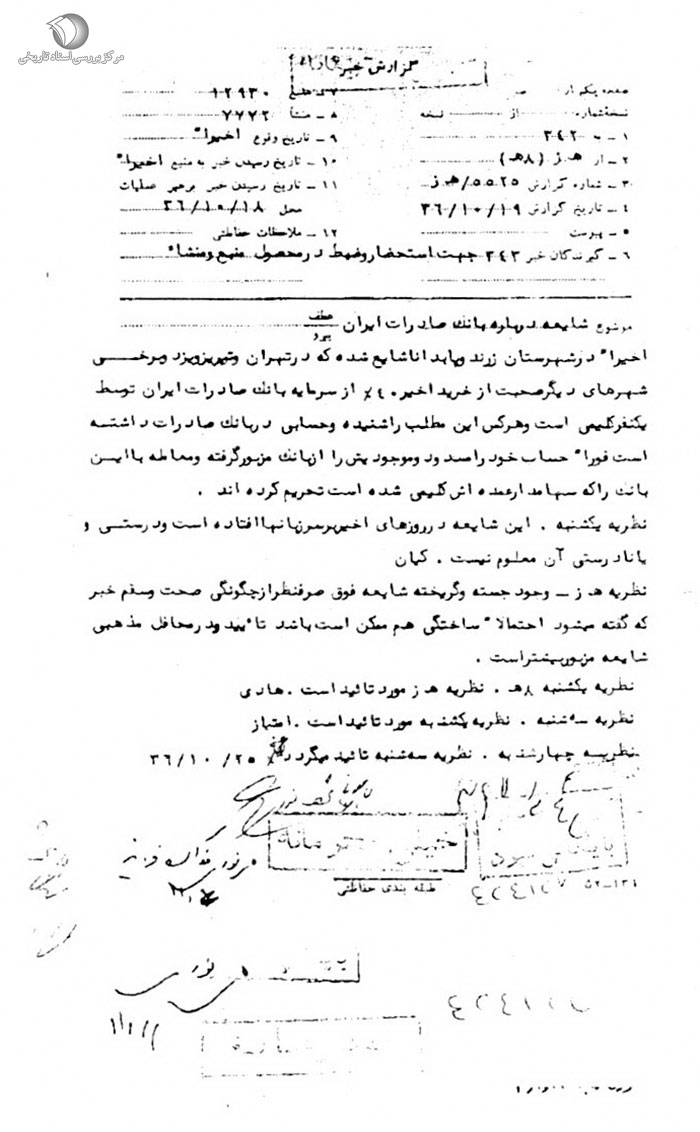 مرکز بررسی اسناد تاریخی
گزارش خبر
صفحه یکم از
۷ - منبع ۱۲۹۳۰
نسخه شماره از نسخه
۸ - منشأ ۷۷۷۲
۱ - به ۳۴۲
۹ - تاریخ وقوع اخیراً
۲ - از ه‍ ز (۸ه‍)
۱۰ - تاریخ رسیدن خبر به منبع اخیراً
۳ - شماره گزارش ۵۵۲۵/ه‍ ز
۱۱ - تاریخ رسیدن خبر برهبر عملیات
۴ - تاریخ گزارش ۳۶/۱۰/۱۹
محل ۳۶/۱۰/۱۸
۵ - پیوست
۱۲ - ملاحظات حفاظتی
۶ - گیرندگان خبر ۳۴۳ جهت استحضار و ضبط در محصول منبع و منشاء
موضوع شایعه درباره بانک صادرات ایران عطف پیرو
اخیراً در شهرستان زرند و پابدانا شایع شده که در تهران و تبریز و یزد و برخی
شهرهای دیگر صحبت از خرید اخیر ۴۰٪ از سرمایه بانک صادرات ایران توسط
یکنفر کلیمی است و هر کس این مطلب را شنیده و حسابی در بانک صادرات داشته
است فوراً حساب خود را مسدود و موجودیش را از بانک مزبور گرفته و معامله با این
بانک را که سهامدار عمده اش کلیمی شده است تحریم کرده اند .
نظریه یکشنبه . این شایعه در روزهای اخیر بر سر زبانها افتاده است و درستی و
یا نادرستی آن معلوم نیست . کیان
نظریه ه‍ ز - وجود جسته و گریخته شایعه فوق صرفنظر از چگونگی صحت و سقم خبر
که گفته میشود احتمالاً ساختگی هم ممکن است باشد تایید و در محافل مذهبی
شایعه مزبور بیشتر است .
نظریه یکشنبه ۸ه‍ . نظریه ه‍ ز مورد تائید است . هادی
نظریه سه شنبه . نظریه یکشنبه مورد تائید است . امتیاز
نظریه چهارشنبه . نظریه سه شنبه تائید میگردد ۳۶/۱۰/۲۵
طبقه بندی حفاظتی
۵۲-۱۳۱